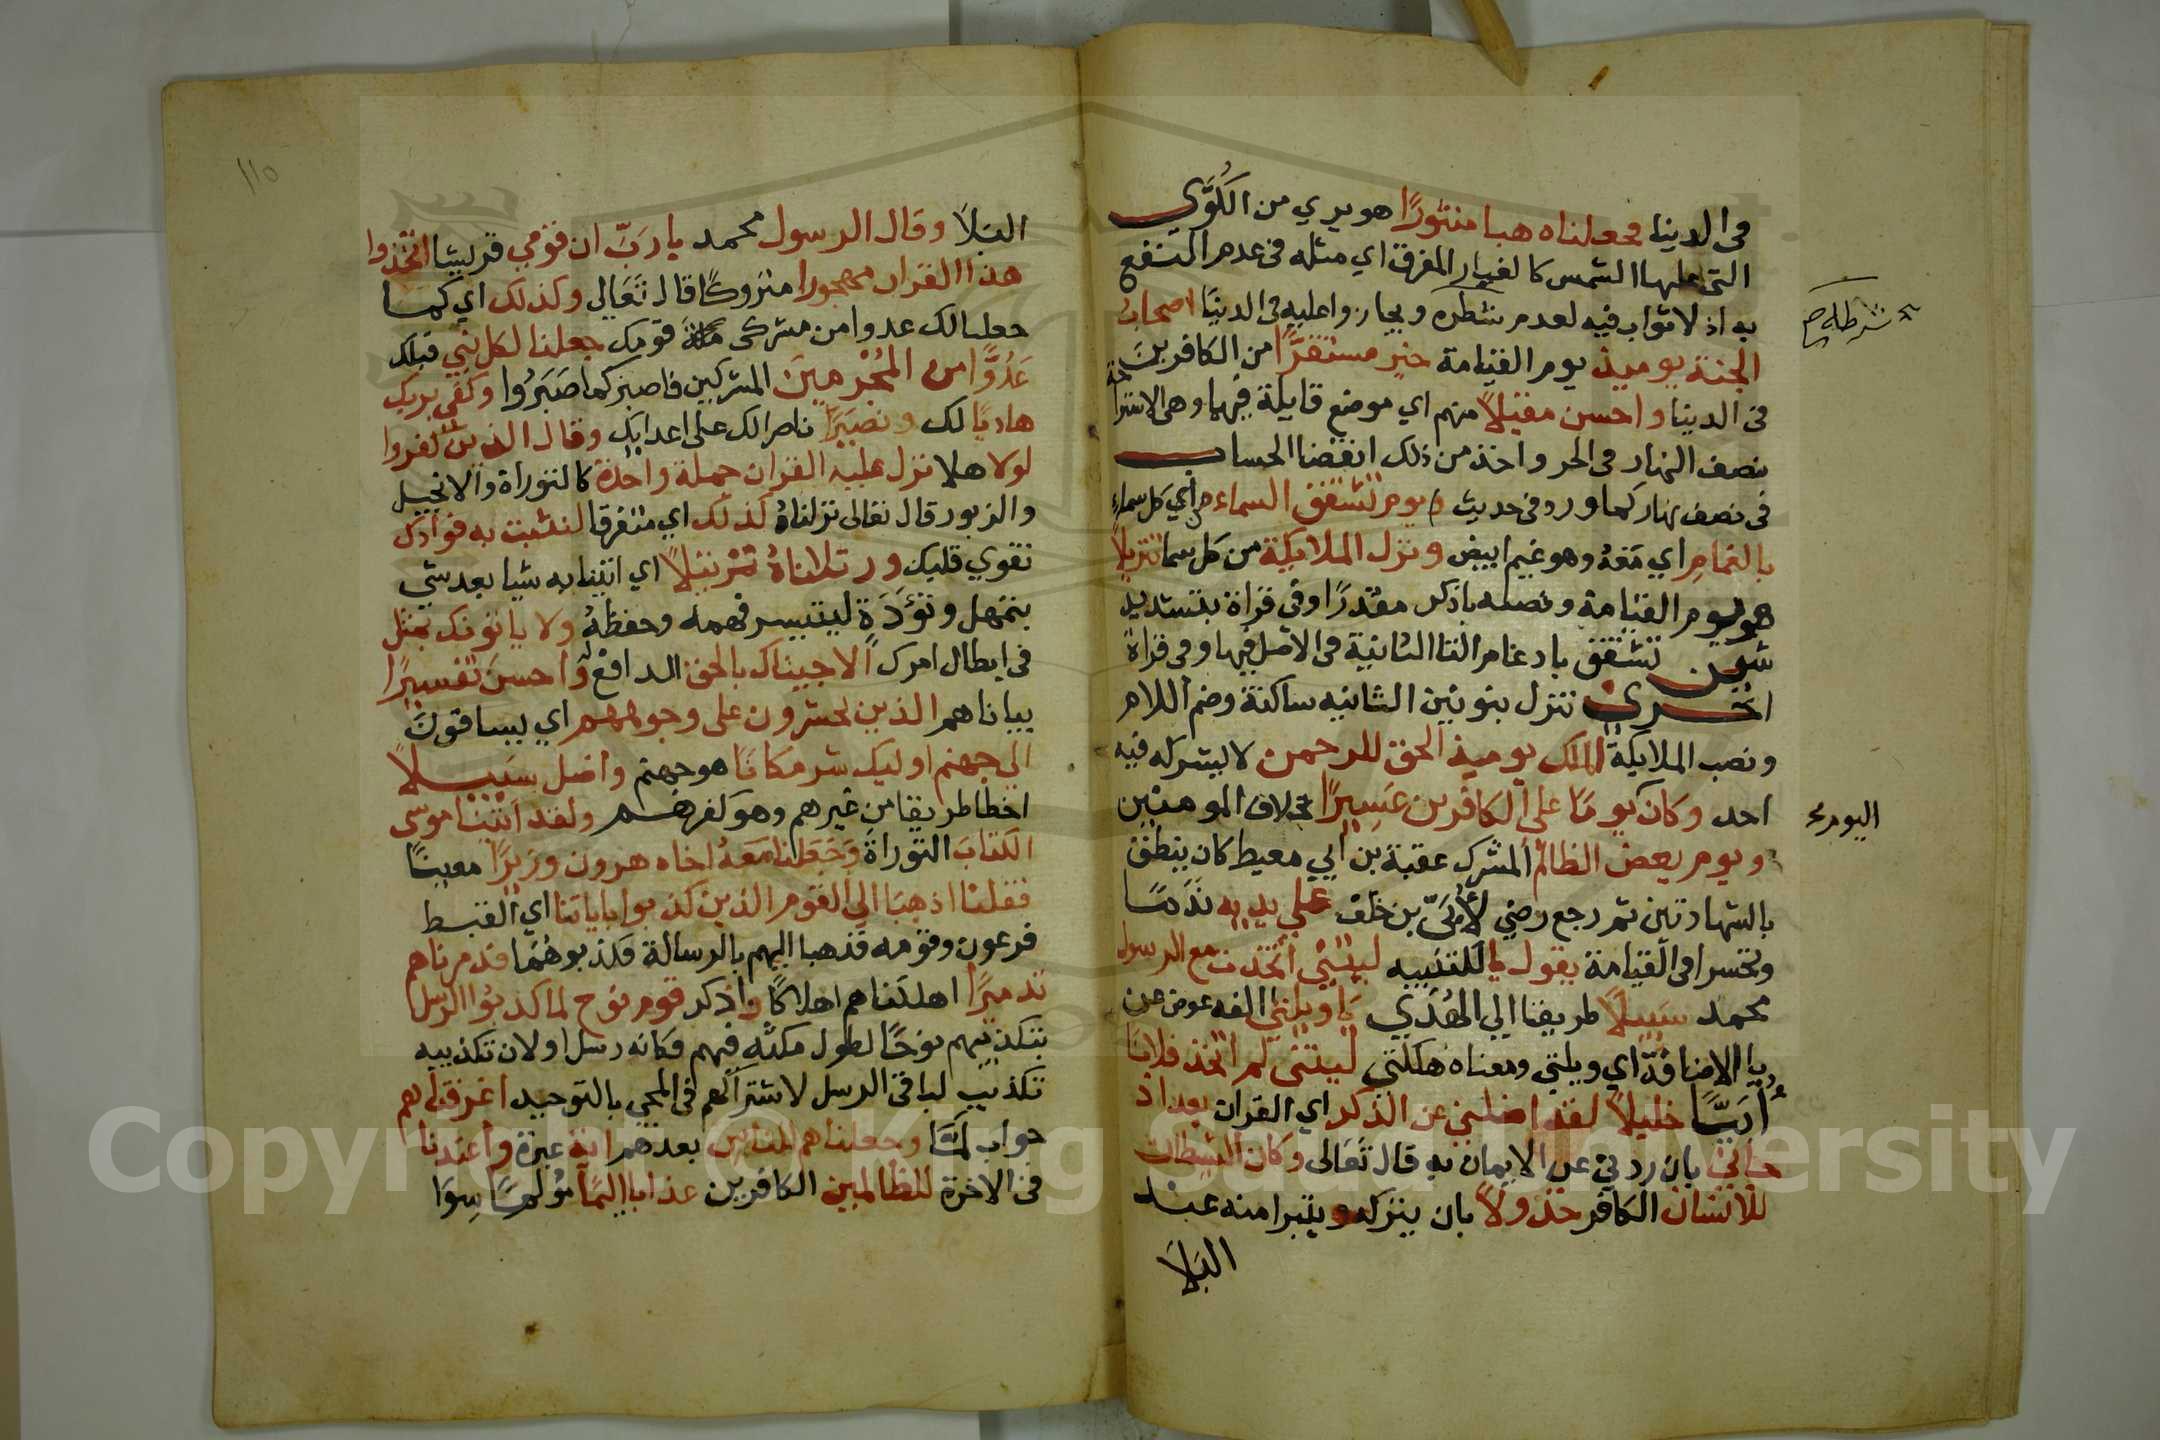 فى الدينا فجعلناه هبا منثورًا هو يري من الكُوَّي
التى علىها الشمس كالغبار المفرق اي مثله فى عدم النفع
به اذ لا ثواب فيه لعدم شطره ويجازوا عليه فى الدينَا اصحاب
شرطه صح
الجنة يوميذ يوم القيامة خير مستقرًّا من الكافرينَ
فى الدينا واحسن مقيلاً منهم اي موضع قايلة فيها وهى الاستراحة
نصف النهار فى الحر واخذ من ذلك انقضا الحساب
فى نصف نهار كما ورد فى حديث ويوم تشقق السماء اي كل سماءٍ
بالغمامِ اي مَعَهُ وهو غيم ابيض ونزل الملايكة من كل سما تنزيلاً
هو يوم القيامة ونصبه باذكر مقدرًا وفى قراة بتشديد
شين تشقق بادغام التا الثانية فى الاصل فيها وفى قراة
اخري ننزل بنونين الثانيه ساكنة وضم اللام
ونصب الملايكة الملك يوميذ الحق للرحمن لا يشركه فيه
احد وكان يومًا على الكافرين عَسِيرًا بخلاف المومنين
اليوم
ويوم يعض الظالم المشرك عقبة بن ابي معيط كان ينطق
بالشهادتين ثم رجع رضي لأُبَىّ بن خلف على يديه نَدَمًا
وتحسرا فى القيامة يقول يا للتنبيه ليتني اتخذت مع الرسول
محمد سَبيلاً طريقا الي الهُدَي يَا ويلتي الفه عوض عن
يا الاضافة اي ويلتي ومعناه هلكتي ليتنى لم اتخذ فلانًا
أُبَيًّا خليلاً لقد اضلني عن الذكر اي القران بعد اذ
جاني بان ردني عن الايمان به قال تَعَالى وكان الشيطان
للانسَان الكافر خذولاً بان يتركه ويتبرا منه عند
البَلاَ
١١٥
البَلاَ وقال الرسول محمد يا رَبّ ان قومي قريشا اتخَذوا
هذا القران مهجورا متروكًا قال تَعَالى وكذلك اي كما
جعلنا لك عدوا من مشركى قومك جعلنا لكل نبي قبلك
عَدُوًّا من المُجْرِمِينَ المشركين فاصبر كما صَبَرُوا وكفى بربك
هاديًا لك ونصيرًا ناصرا لك على اعدايك وقال الذين كفروا
لولا هلا نزل عليه القران جملة واحدة كالتوراة والانجيل
والزبور قال تعالى نزلناهُ كذلك اي متفرقا لنثبت به فوادك
نقوي قلبك ورتلناهُ تَرْتيلاً اي اتينا به شيا بعد شي
بتمهل وتؤَدَةٍ ليتيسر فهمه وحفظهُ ولا ياتونك بمثل
فى ابطال امرك الا جيناك بالحق الدافع له واحسنَ تفسيرًا
بيانا هم الذين يحشرون على وجوههم اي يساقونَ
الي جهنم اوليك شر مكانًا هو جهنم واضل سَبيلاً
اخطا طريقا من غيرهم وهو كفرهم ولقد اتينَا موسى
الكتابَ التوراةَ وَجَعَلنا مَعَهُ اخاه هرون وزيرًا معينًا
فقلنا اذهبَا الي القوم الذين كذبوا باياتنا اي القبط
فرعون وقومه فذهبا اليهم بالرسالة فكذبوهُمَا فدمرناهم
تدميرًا اهلكناهم اهلاكًا واذكر قوم نوح لما كذبوُا الرسل
بتكذيبهم نوحًا لطول مكثه فيهم فكانه رسل او لان تكذيبه
تكذيب لباقى الرسل لاشتراكهم فى المجي بالتوحيد اغرقناهم
جواب لمَّا وجعلناهم للناس بعدهم اية عبرة واعتدنا
فى الاخرة للظالمين الكافرين عذابا اليمًا مُولمًا سِوَا
Copyright © King Saud University